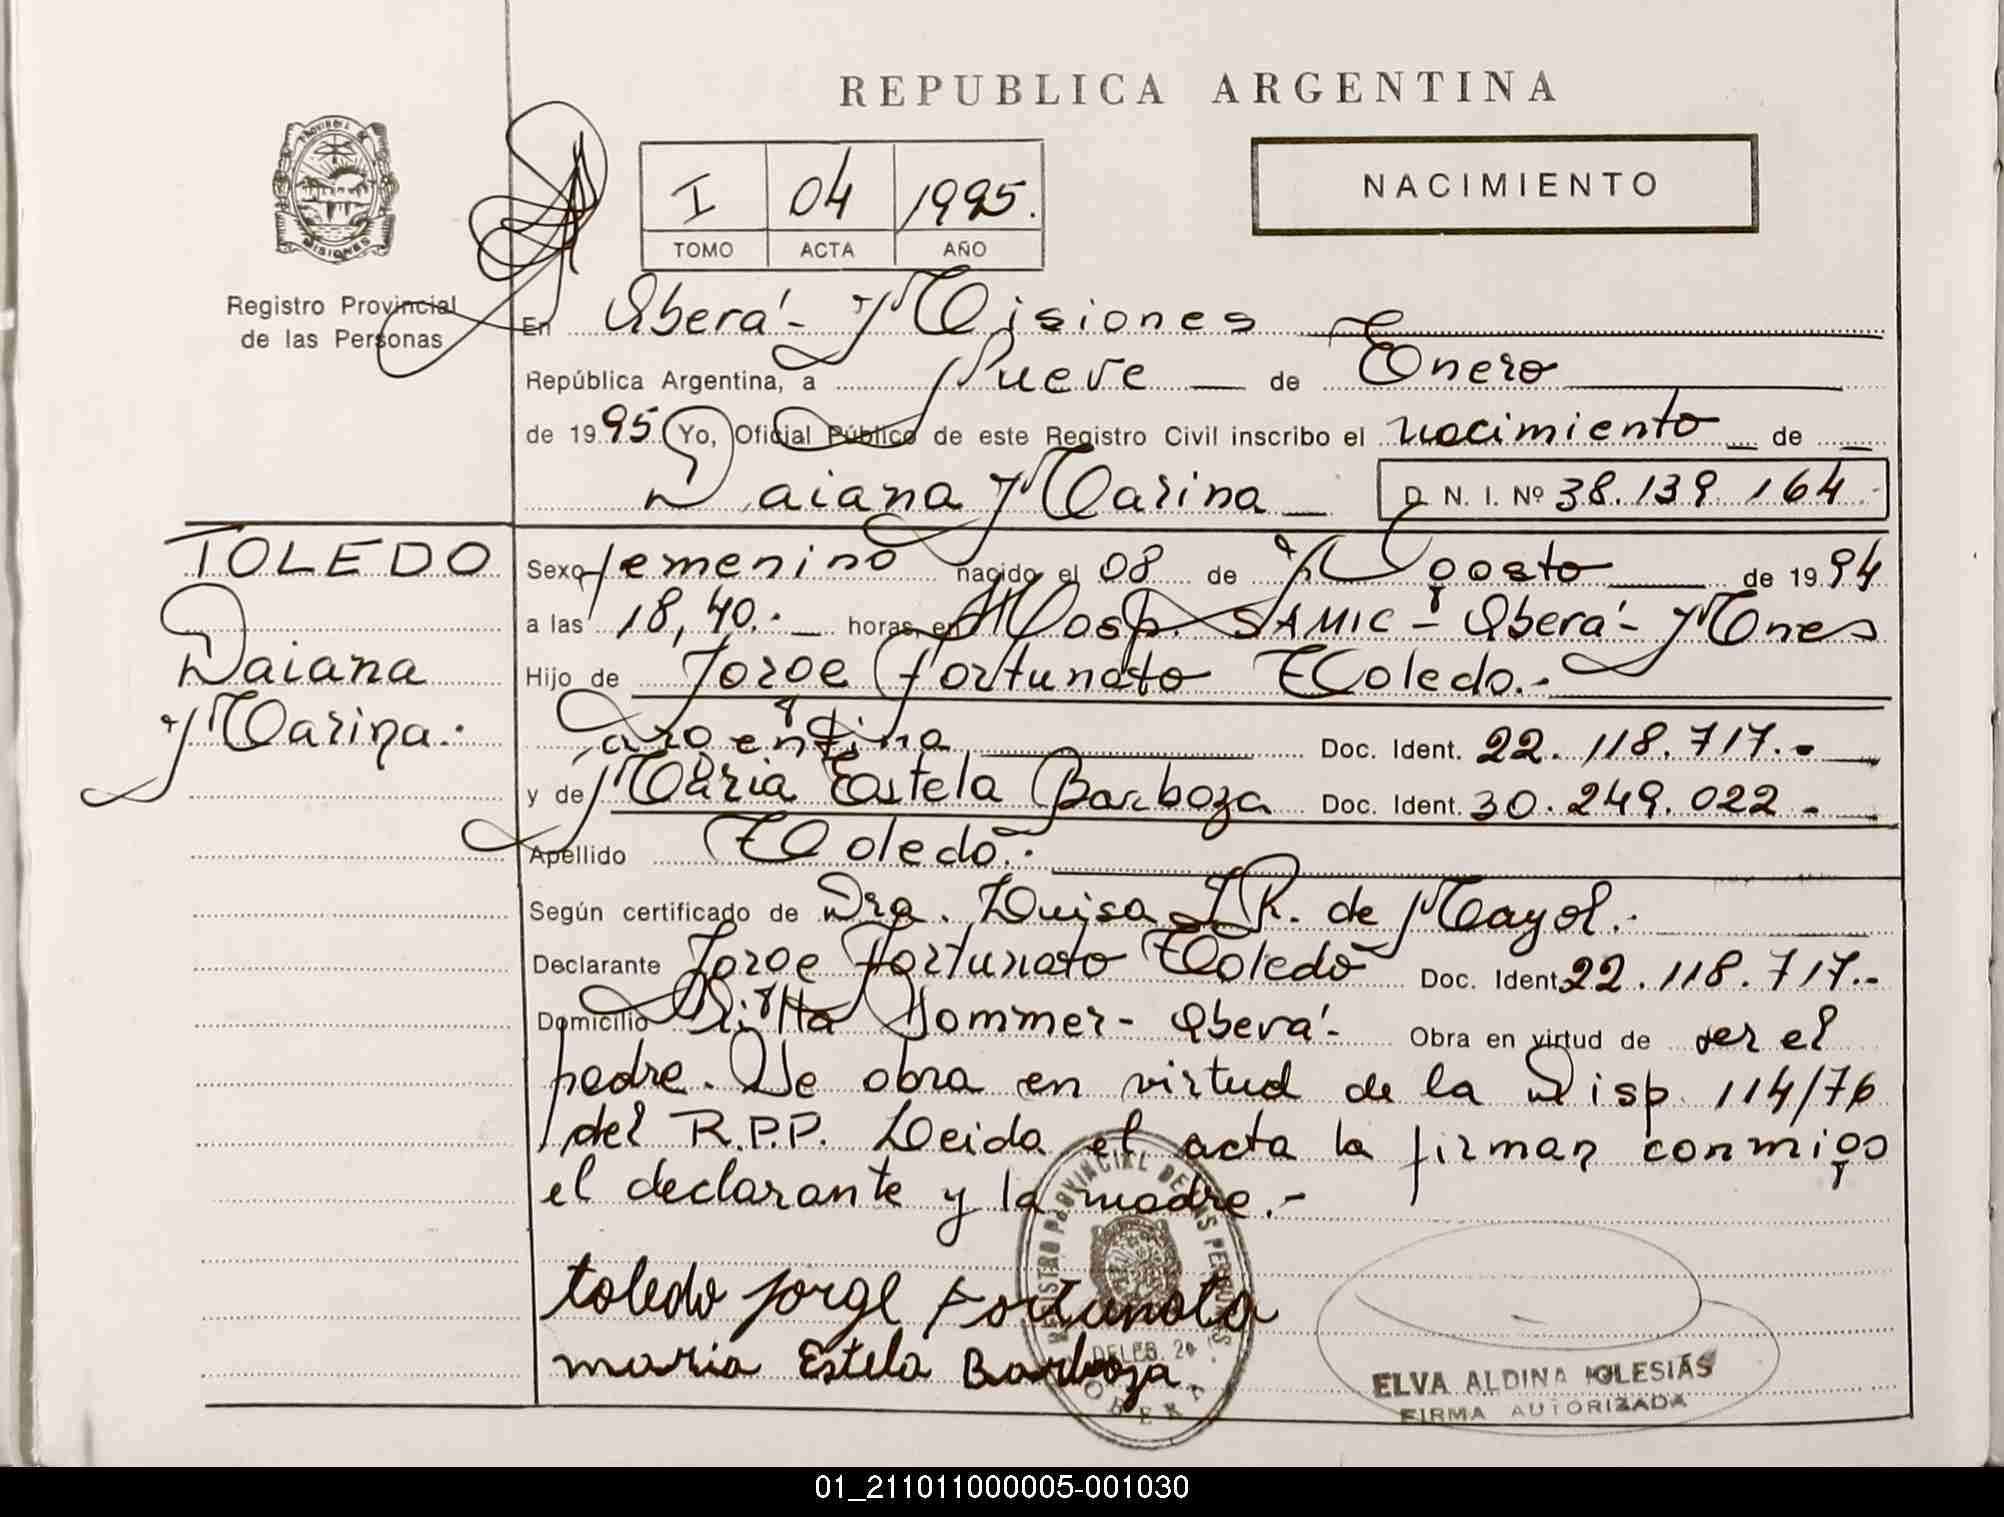 REPUBLICA ARGENTINA
PROVINCIA DE MISIONES
Registro Provincial
de las Personas
I 04 1995.
TOMO ACTA AÑO
NACIMIENTO
En Oberá - Misiones
República Argentina, a Nueve — de Enero
de 1995 Yo, Oficial Público de este Registro Civil inscribo el nacimiento — de —
Daiana Marina — D. N. I. Nº 38.139.164.-
TOLEDO
Daiana
Marina.-
Sexo femenino nacido el 08 de Agosto de 1994
a las 18,40.- horas en Hosp. SAMIC - Oberá - Mnes
Hijo de Jorge Fortunato Toledo.-
argentina Doc. Ident. 22.118.717.-
y de Maria Estela Barboza Doc. Ident. 30.249.022 -
Apellido Toledo.-
Según certificado de Dra. Luisa R. de Mayol.-
Declarante Jorge Fortunato Toledo Doc. Ident. 22.118.717.-
Domicilio Villa Bommer - Oberá - Obra en virtud de ser el
padre. Se obra en virtud de la Disp. 114/76
del R.P.P. Leida el acta la firman conmigo
el declarante y la madre.-
toledo jorge Fortunato
maria Estela Barboza
REGISTRO PROVINCIAL DE LAS PERSONAS
OBERA
ELVA ALDINA IGLESIAS
FIRMA AUTORIZADA
01_211011000005-001030